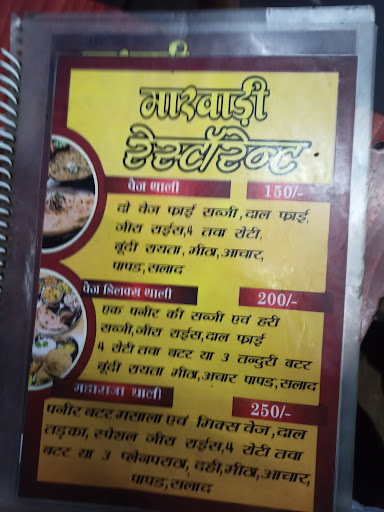 मारवाड़ी
रेस्टॉरेन्ट
वेज थाली 150/-
दो वेज फ्राई सब्जी, दाल फ्राई,
जीरा राईस, 4 तवा रोटी,
बूंदी रायता, मीठा, आचार,
पापड, सलाद
वेज डिलक्स थाली 200/-
एक पनीर की सब्जी एवं हरी
सब्जी, जीरा राईस, दाल फ्राई
4 रोटी तवा बटर या 3 तन्दुरी बटर
बूंदी रायता मीठा, अचार पापड, सलाद
महाराजा थाली 250/-
पनीर बटर मसाला एवं मिक्स वेज, दाल
तड़का, स्पेशल जीरा राईस, 4 रोटी तवा
बटर या 3 प्लेनपराठा, दही, मीठा, आचार,
पापड, सलाद